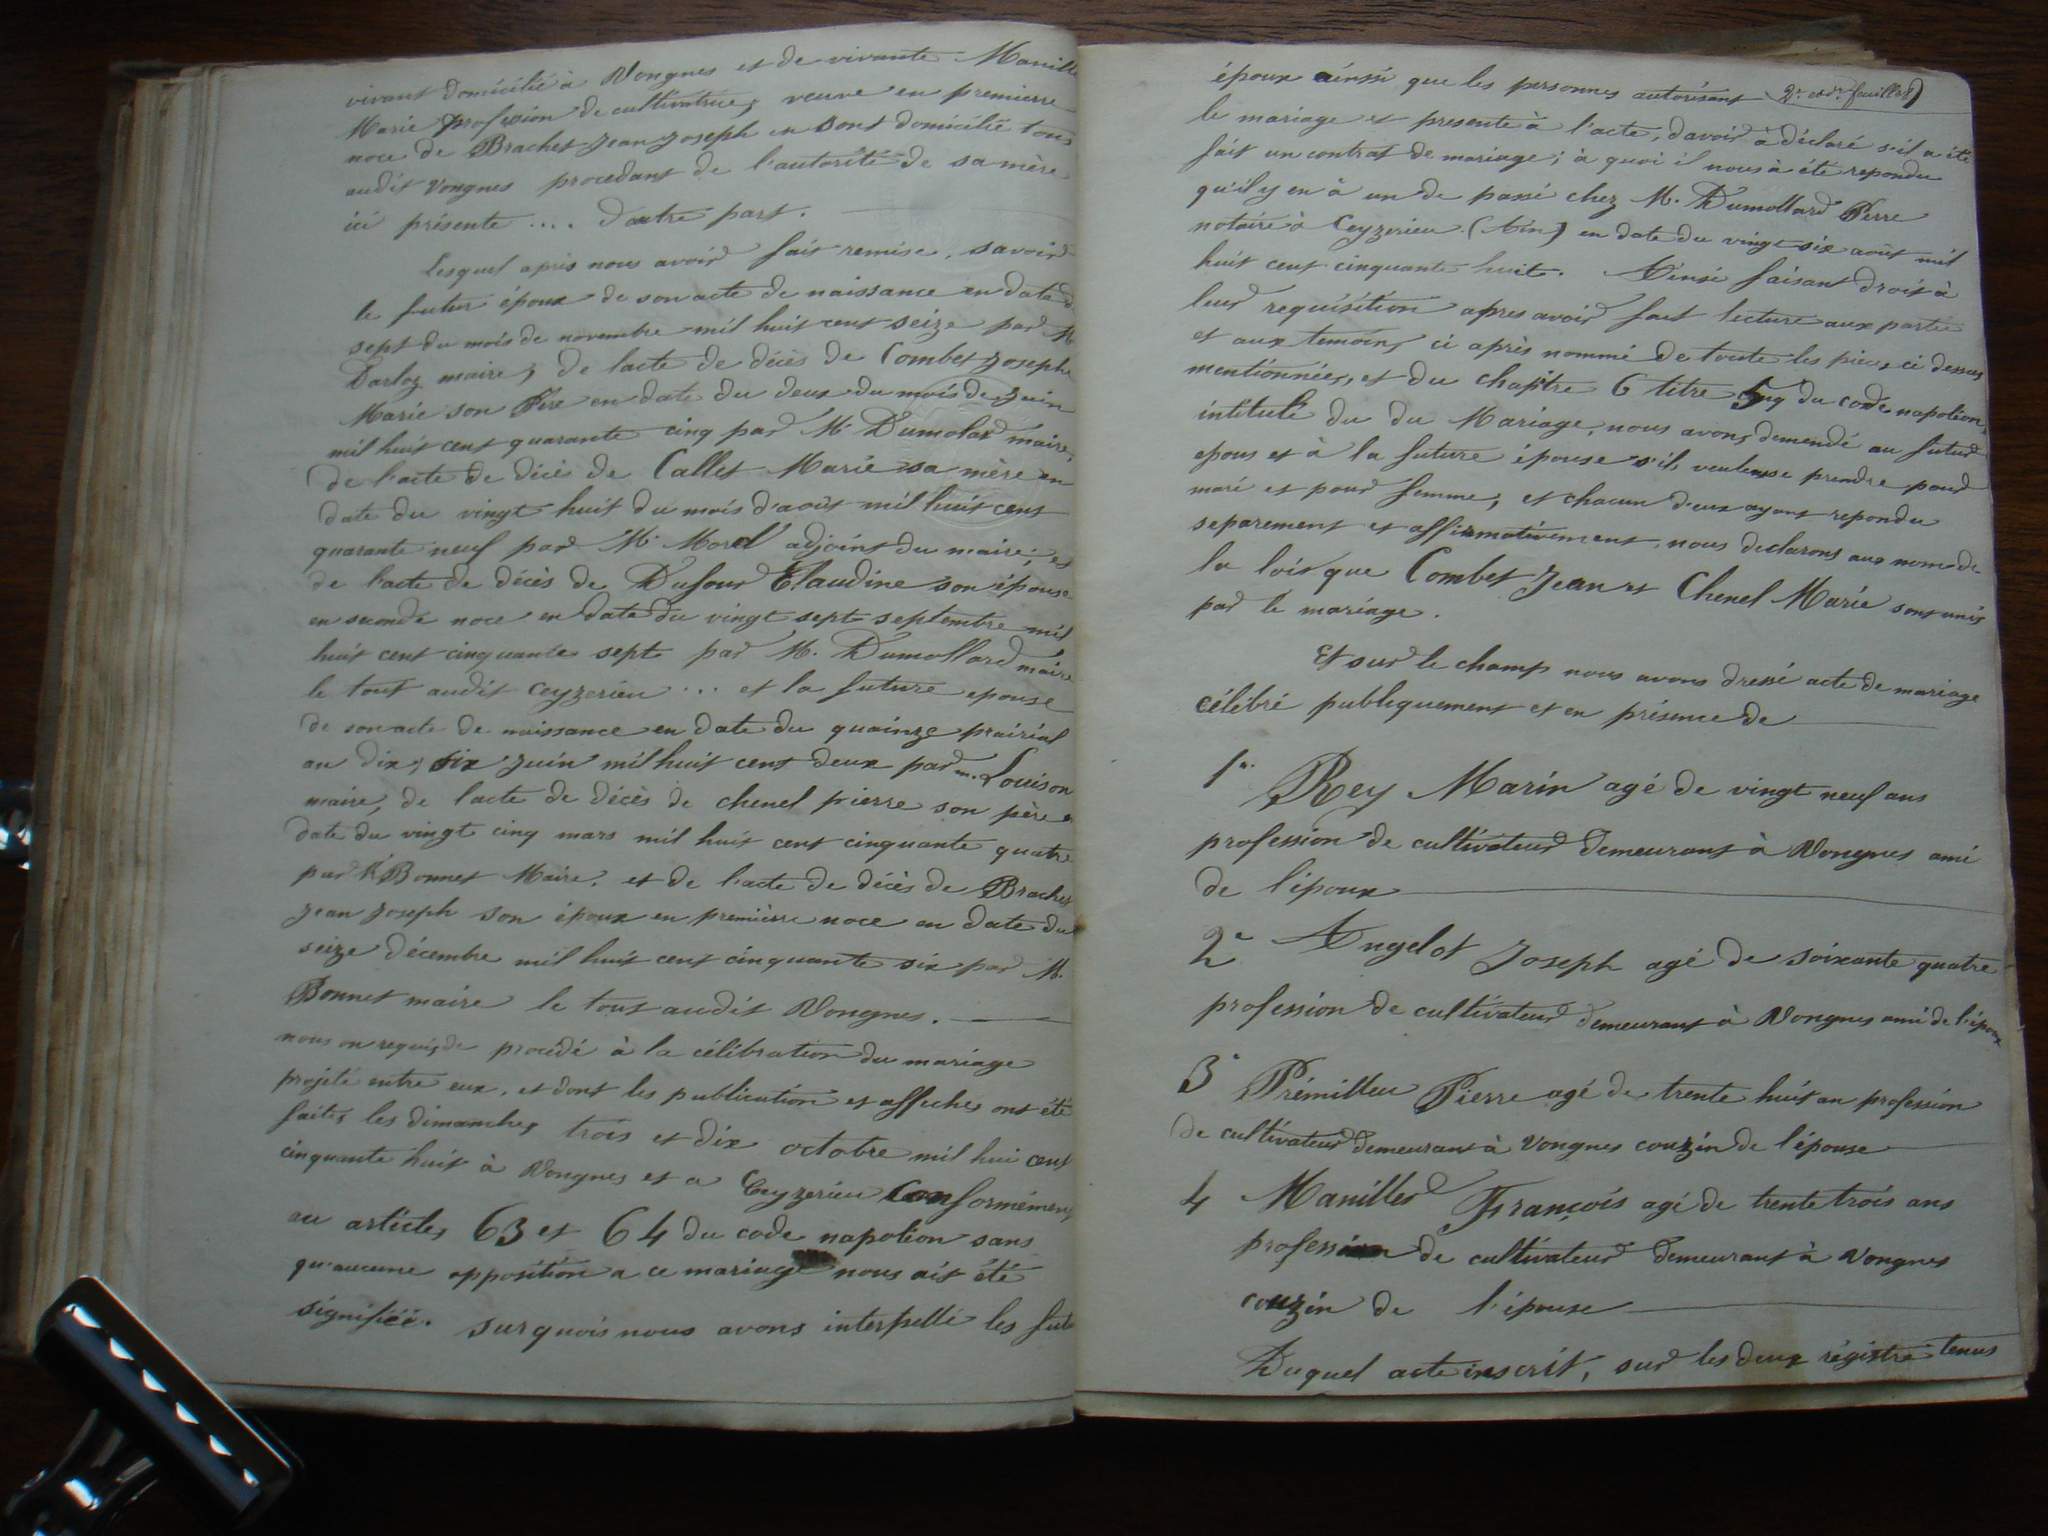 vivant domicilié à Vongnes et de vivante Manille
Marie profession de cultivatrice, veuve en premierre
noce de Brachet Jean Joseph en sont domicilié tous
audit Vongnes procedant de l'autorité de sa mère
ici présente .... d'autre part.
Lesquel après nous avoir fait remise, savoir
le futur époux de son acte de naissance en date d
sept du mois de novembre mil huit cent seize par M
Darloz maire, de l'acte de décès de Combet Joseph
Marie son Père en date du deux du mois de Juin
mil huit cent quarante cinq par Mr Dumolard maire,
de l'acte de décè de Callet Marie sa mère en
date du vingt huit du mois d'août mil huit cent
quarante neuf par Mr Morel adjoint du maire, et
de l'acte de décès de Dufour Claudine son épouse
en seconde noce en date du vingt sept septembre mil
huit cent cinquante sept par M. Dumollard maire
le tout audit Ceyzerieu ... et la future epouse
de son acte de naissance en date du quainze prairial
an dix, six Juin mil huit cent deux par m. Louison
maire, de l'acte de décès de chenel pierre son père e
date du vingt cinq mars mil huit cent cinquante quatre
par Mr Bonnet Maire, et de l'acte de décès de Brachet
Jean Joseph son époux en premièrre noce en date du
seize décembre mil huit cent cinquante six par M.
Bonnet maire le tout audit Vongnes.
nous on requis de procédé à la célébration du mariage
projeté entre eux, et dont les publication et affiches ont été
faites les dimanches trois et dix octobre mil hui cent
cinquante huit à Vongnes et a Ceyzerieu Conformément
au articles 63 et 64 du code napoléon sans
qu'aucune opposition a ce mariage nous ait été
signifiéé. sur quois nous avons interpellé les futu
époux ainssi que les personnes autorisant 2e et dr feuillet)
le mariage et presente à l'acte, d'avoir à déclaré s'il a été
fait un contrat de mariage; à quoi il nous à été repondu
qu'il y en à un de passé chez M. Dumollard Pierre
notaire à Ceyzerieu (Ain) en date du vingt six août mil
huit cent cinquante huit. Ainsi faisant droit à
leur requisition apres avoir fait lecture aux partie
et aux temoins ci après nommé de toute les pieces ci dessus
mentionnées, et du chapitre 6 titre 5 du code napoléon,
intitulé du du Mariage, nous avons demendé au futur
epous et à la future épouse s'ils veulense prendre pour
mari et pour femme, et chacun d'eux ayant repondu
separement et affirmativement, nous declarons aus nom de
la lois que Combet Jean et Chenel Marie sont unis
par le mariage.
Et sur le champ nous avons dressé acte de mariage
célébré publiquement et en présence de
1er Rey Marin agé de vingt neuf ans
profession de cultivateur demeurant à Vongnes ami
de l'époux
2e Angelot Joseph agé de soixante quatre
profession de cultivateur demeurant à Vongnes ami de l'époux
3e Prémilleu Pierre agé de trente huit an profession
de cultivateur demeurant à Vongnes couzin de l'épouse
4 Manillier François agé de trente trois ans
profession de cultivateur demeurant à Vongnes
couzin de l'épouse
Duquel acte inscrit, sur les deux régistre tenus